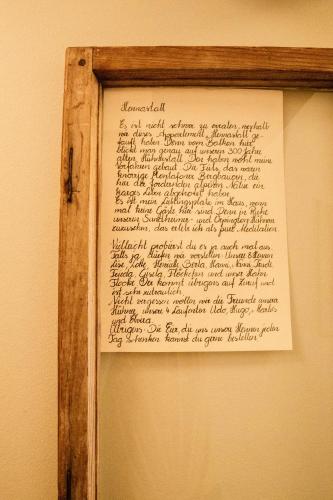 Hennastall
Es ist nicht schwer zu erraten, weshalb
wir dieses Appartement "Hennastall" ge-
tauft haben. Denn vom Balkon hier
blickt man genau auf unseren 300 Jahre
alten Hühnerstall. Den haben wohl meine
Vorfahren gebaut. Die Tiefs, das waren
knorrige Montafoner Bergbauern, die
hier der fordernden alpinen Natur ein
karges Leben abgerungen haben.
Es ist mein Lieblingsplatz im Haus, wenn
mal keine Gäste hier sind. Denn in Ruhe
unseren Sundheimer- und Orpington Hennen
zuzusehen, das erlebe ich als pure Meditation.
Vielleicht probierst du es ja auch mal aus.
Falls ja, dürfen wir vorstellen: Unsere Hennen
Lise, Lotte, Berta, Hanni, Frau
Gisela, Flöckchen und unser Hahn
Flocke. Der kommt übrigens auf Zuruf und
ist sehr zutraulich.
Nicht vergessen wollen wir die Freunde unserer
Hühner, unsere 4 Laufenten Udo, Hugo,
und Elvira.
Übrigens: Die Eier, die uns unsere Hennen jeden
Tag schenken kannst du gerne bestellen.